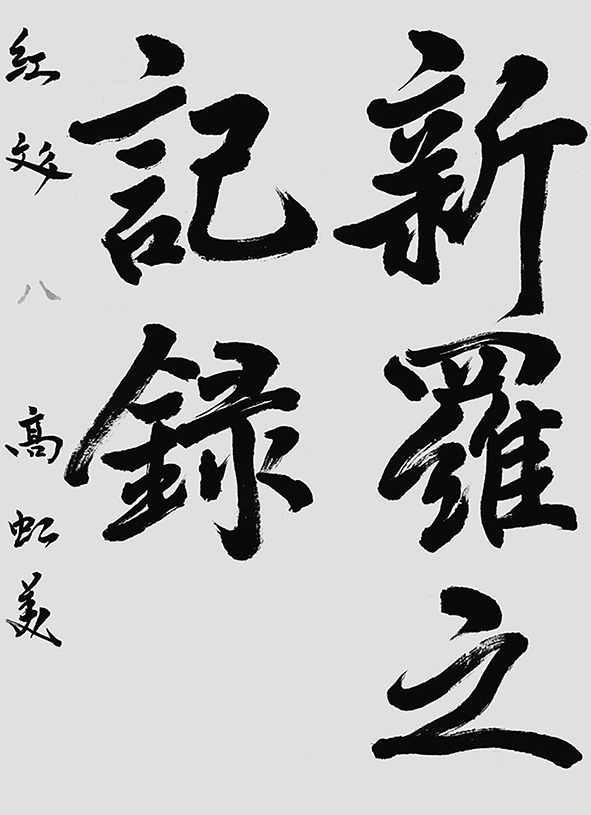 新羅之
記録
紅姣 八 高虹美